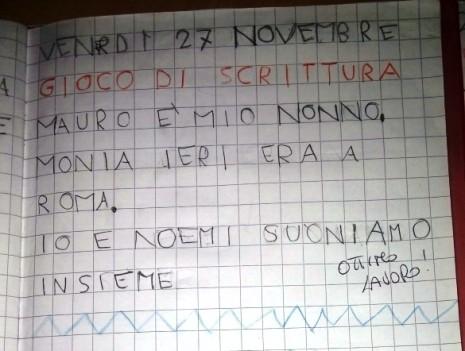 VENRDI 27 NOVEMBRE
GIOCO DI SCRITTURA
MAURO E' MIO NONNO.
MONIA IERI ERA A
ROMA.
IO E NOEMI SUONIAMO
INSIEME
OTTIMO
LAVORO!